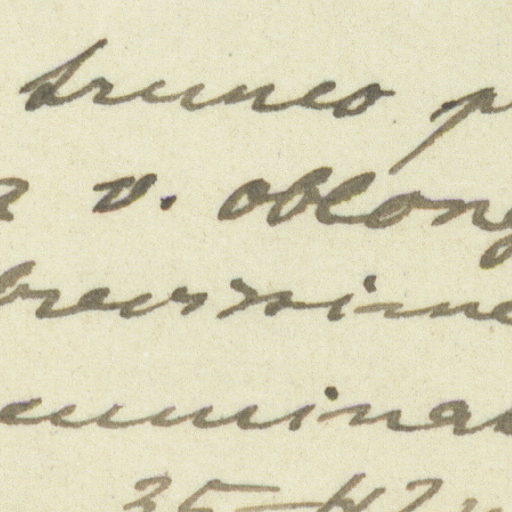 trunco p
a v. oblong
brevissime
cuminat
35-47